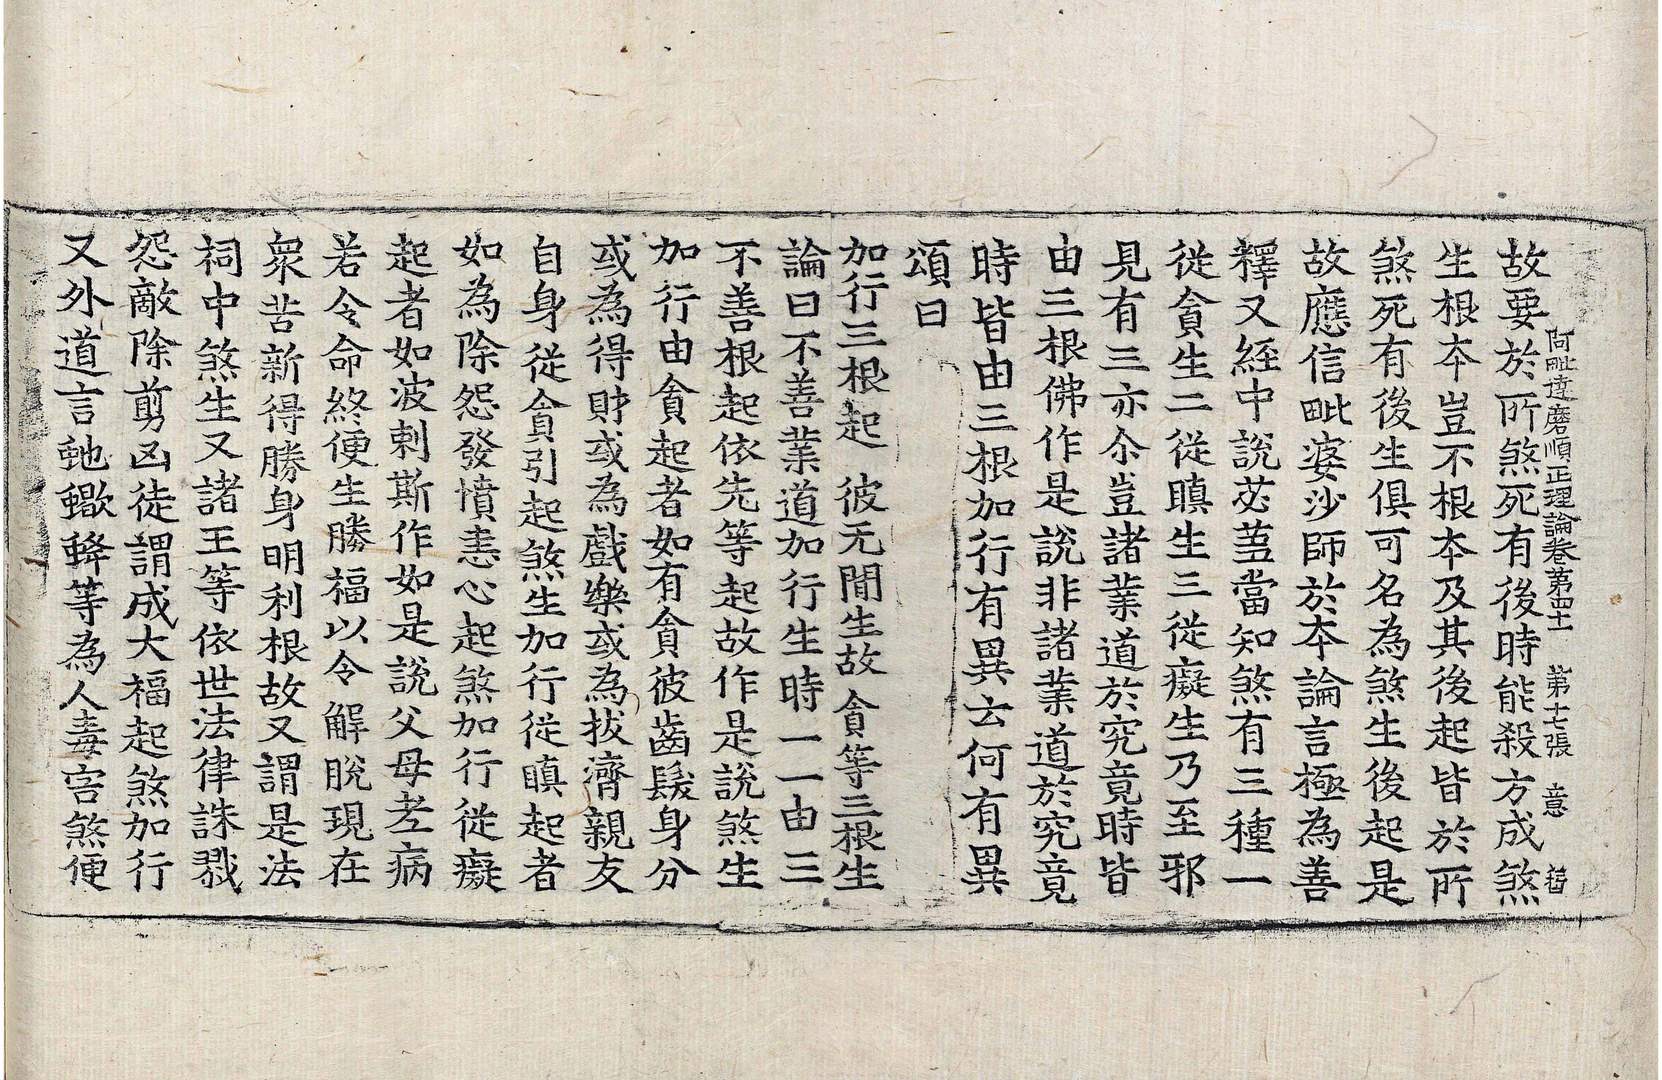 阿毗達磨順正理論卷第四十一 第十七張 意
故要於所煞死有後時能殺方成煞
生根夲豈不根夲及其後起皆於所
煞死有後生俱可名為煞生後起是
故應信毗婆沙師於夲論言極為善
釋又經中說苾蒭當知煞有三種一
從貪生二從瞋生三從癡生乃至邪
見有三亦尒豈諸業道於究竟時皆
由三根佛作是說非諸業道於究竟
時皆由三根加行有異云何有異
頌曰
加行三根起 彼无間生故 貪等三根生
論曰不善業道加行生時一一由三
不善根起依先等起故作是說煞生
加行由貪起者如有貪彼齒髮身分
或為得財或為戲樂或為拔濟親友
自身從貪引起煞生加行從瞋起者
如為除怨發憤恚心起煞加行從癡
起者如波剌斯作如是說父母老病
若令命終便生勝福以令解脫現在
衆苦新得勝身明利根故又謂是法
祠中煞生又諸王等依世法律誅戮
怨敵除剪凶徒謂成大福起煞加行
又外道言虵蠍蜂等為人毒害煞便